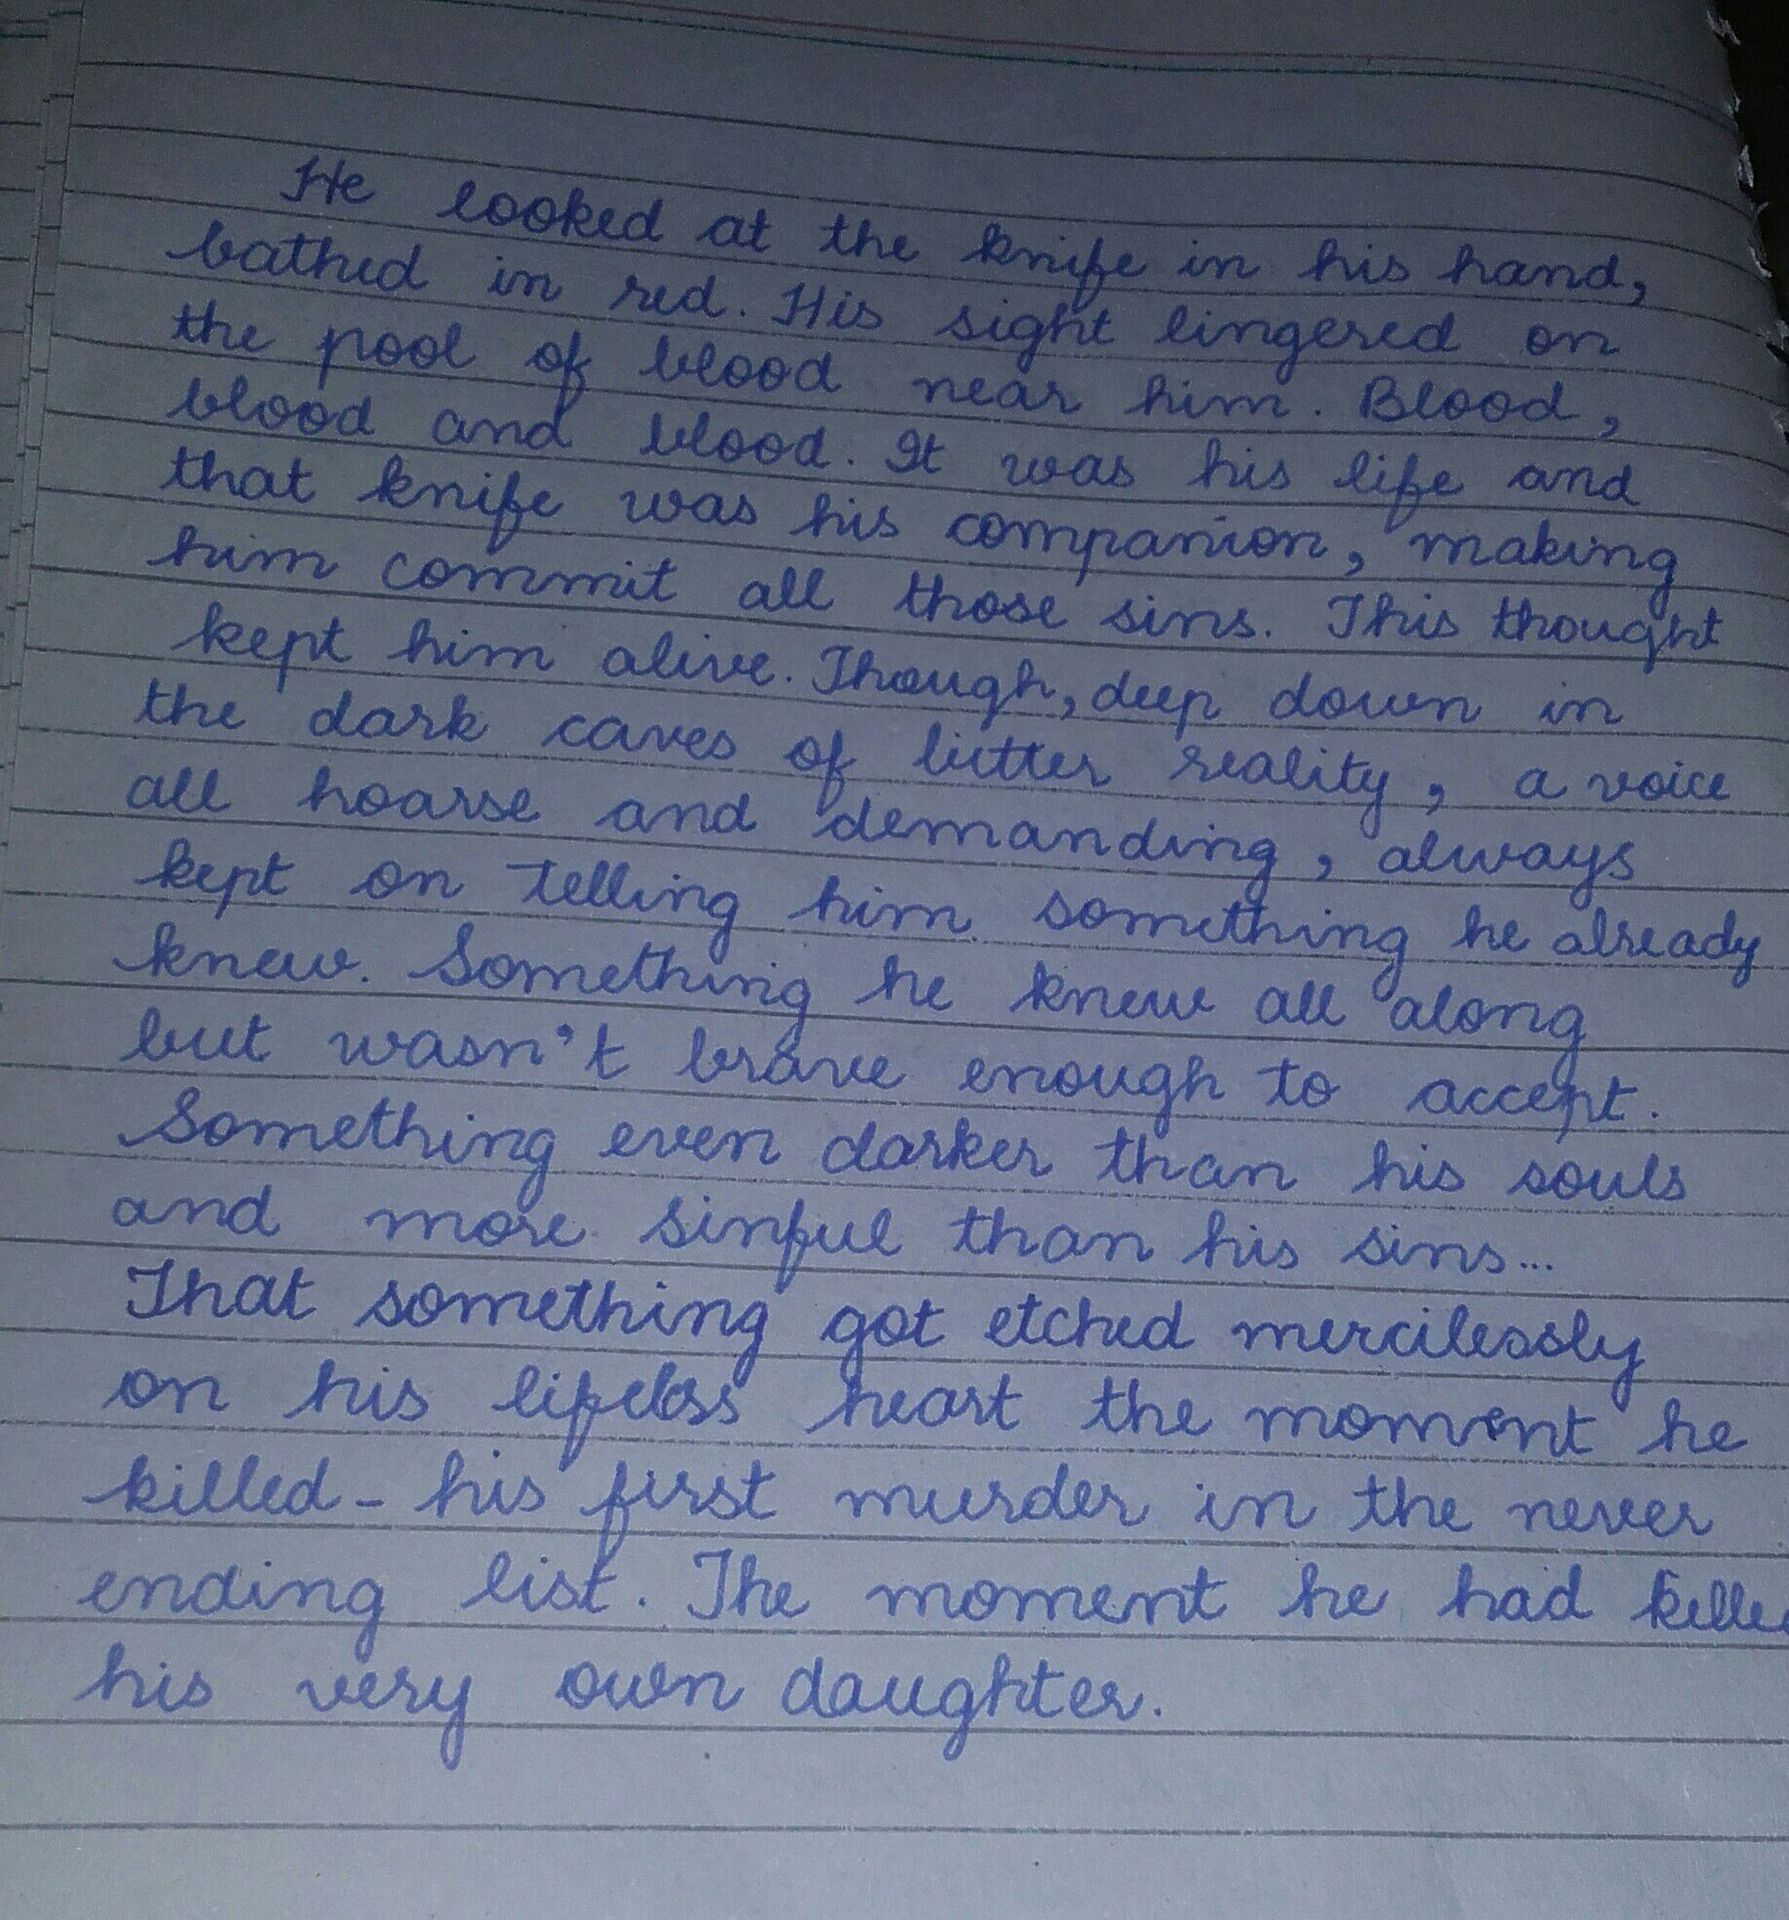 He looked at the knife in his hand,
bathed in red. His sight lingered on
the pool of blood near him. Blood,
blood and blood. It was his life and
that knife was his companion, making
him commit all those sins. This thought
kept him alive. Though, deep down in
the dark caves of bitter reality, a voice
all hoarse and demanding, always
kept on telling him something he already
knew. Something he knew all along
but wasn't brave enough to accept.
Something even darker than his souls
and more sinful than his sins...
That something got etched mercilessly
on his lifeless heart the moment he
killed - his first murder in the never
ending list. The moment he had kille
his very own daughter.